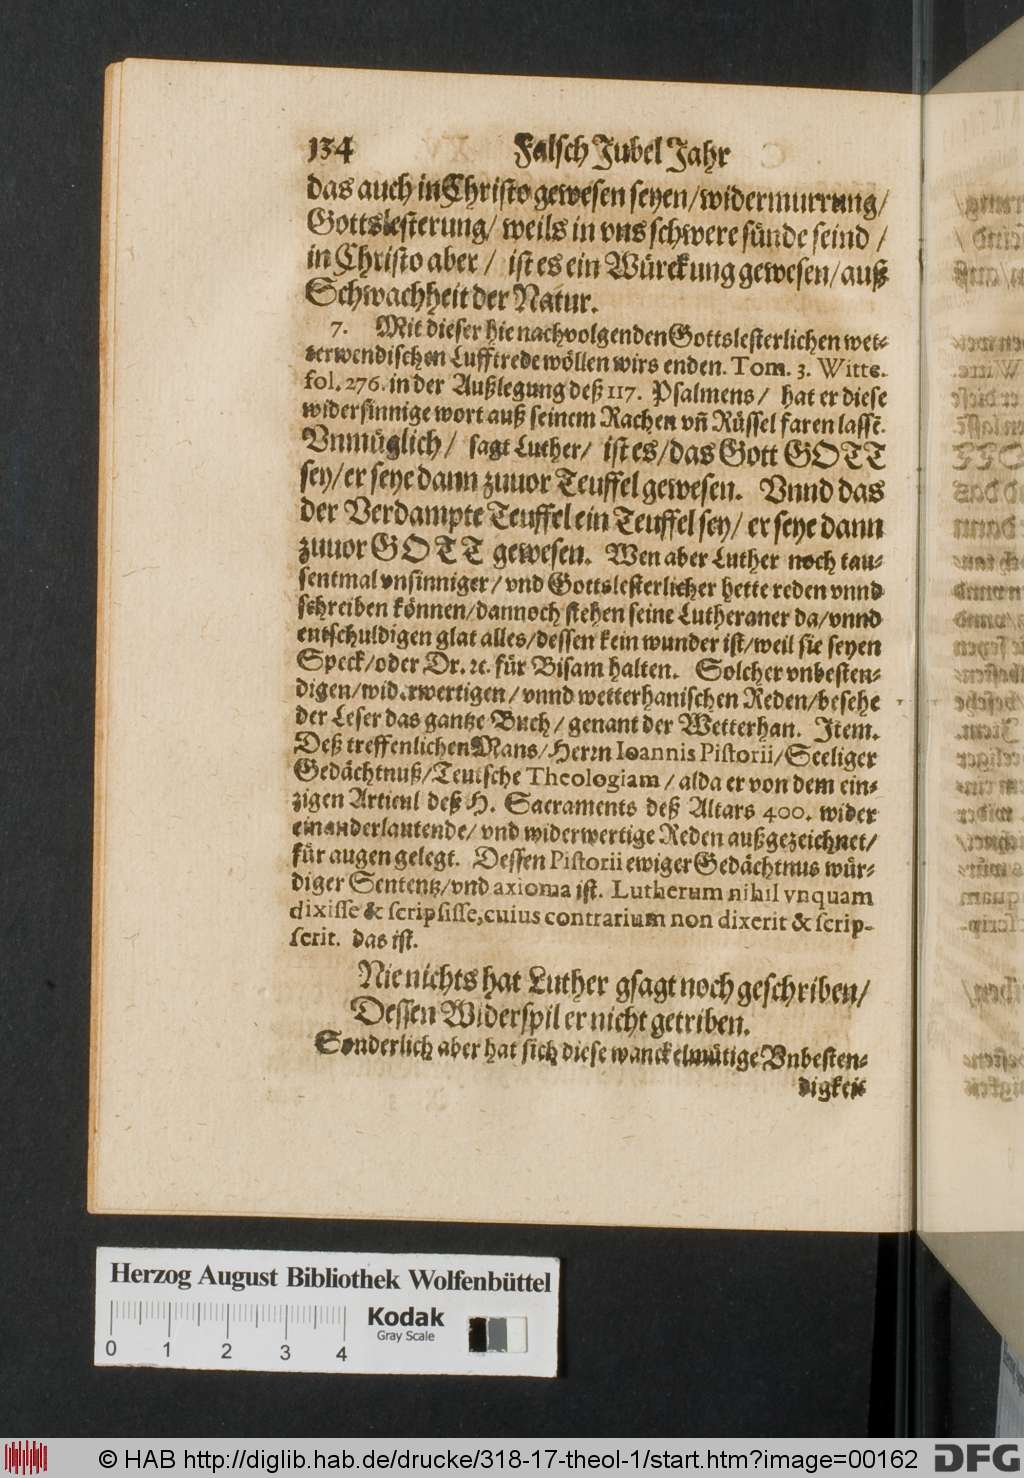 134 Falsch Jubel Jahr
das auch in Christo gewesen seyen/ widermurrung/
Gottslesterung/ weils in vns schwere sünde seind /
in Christo aber / ist es ein Würckung gewesen/ auß
Schwachheit der Natur.
7. Mit dieser hie nachvolgenden Gottslesterlichen wet-
terwendischen Lufftrede wöllen wirs enden. Tom. 3. Witte.
fol. 276. in der Außlegung deß 117. Psalmens/ hat er diese
widersinnige wort auß seinem Rachen vñ Rüssel faren lassē.
Vnmüglich/ sagt Luther/ ist es/ das Gott GOTT
sey/ er seye dann zuuor Teuffel gewesen. Vnnd das
der Verdampte Teuffel ein Teuffel sey/ er seye dann
zuuor GOTT gewesen. Wen aber Luther noch tau-
sentmal vnsinniger/ vnd Gottslesterlicher hette reden vnnd
schreiben können/ dannoch stehen seine Lutheraner da/ vnnd
entschuldigen glat alles/ dessen kein wunder ist/ weil sie seyen
Speck/ oder Dr. ꝛc. für Bisam halten. Solcher vnbesten-
digen/ widerwertigen/ vnnd wetterhanischen Reden/ besehe
der Leser das gantze Buch/ genant der Wetterhan. Item.
Deß treffenlichen Mans/ Herrn Ioannis Pistorii/ Seeliger
Gedächtnuß/ Teutsche Theologiam/ alda er von dem ein-
zigen Articul deß H. Sacraments deß Altars 400. wider
einanderlautende/ vnd widerwertige Reden außgezeichnet/
für augen gelegt. Dessen Pistorii ewiger Gedächtnus wür-
diger Sententz/ vnd axioma ist. Lutherum nihil vnquam
dixisse & scripsisse, cuius contrarium non dixerit & scrip-
serit. das ist.
Nie nichts hat Luther gsagt noch geschriben/
Dessen Widerspil er nicht getriben.
Sonderlich aber hat sich diese wanckelmütige Vnbesten-
digkeit
Herzog August Bibliothek Wolfenbüttel
Kodak
Gray Scale
0 1 2 3 4
© HAB http://diglib.hab.de/drucke/318-17-theol-1/start.htm?image=00162 DFG